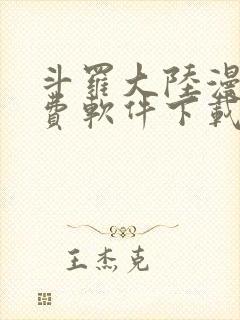 斗羅大陸漫
費軟件下載
王杰克